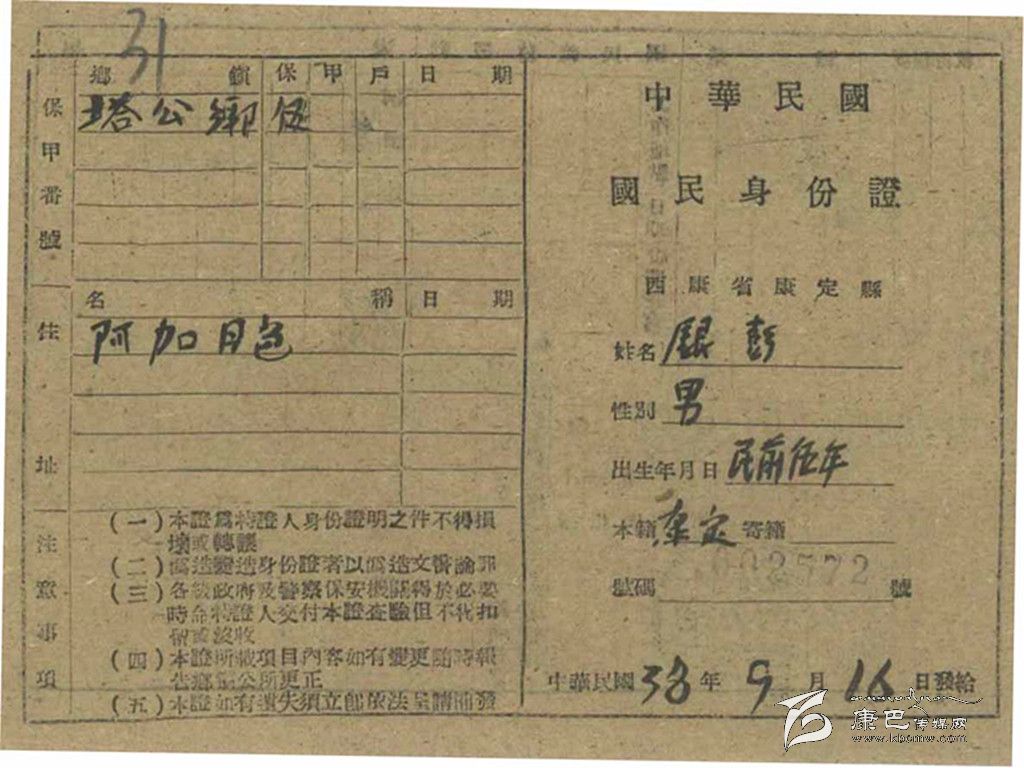 31
鄉鎮 保 甲 戶 日期
保甲番號
塔公鄉
名稱 日期
住址
阿加日色
注意事項
(一)本證爲持證人身份證明之件不得損
壞或轉讓
(二)僞造變造身份證者以僞造文書論罪
(三)各級政府及警察保安機關得於必要
時命持證人交付本證查驗但不得扣
留或沒收
(四)本證所載項目內容如有變更隨時報
告鄉鎮公所更正
(五)本證如有遺失須立即依法呈請補發
中華民國
國民身份證
西康省康定縣
姓名 銀彭
性別 男
出生年月日 民前伍年
本籍 康定 寄籍
號碼 002572 號
中華民國38年9月16日發給
康巴传媒网
www.kbcmw.com